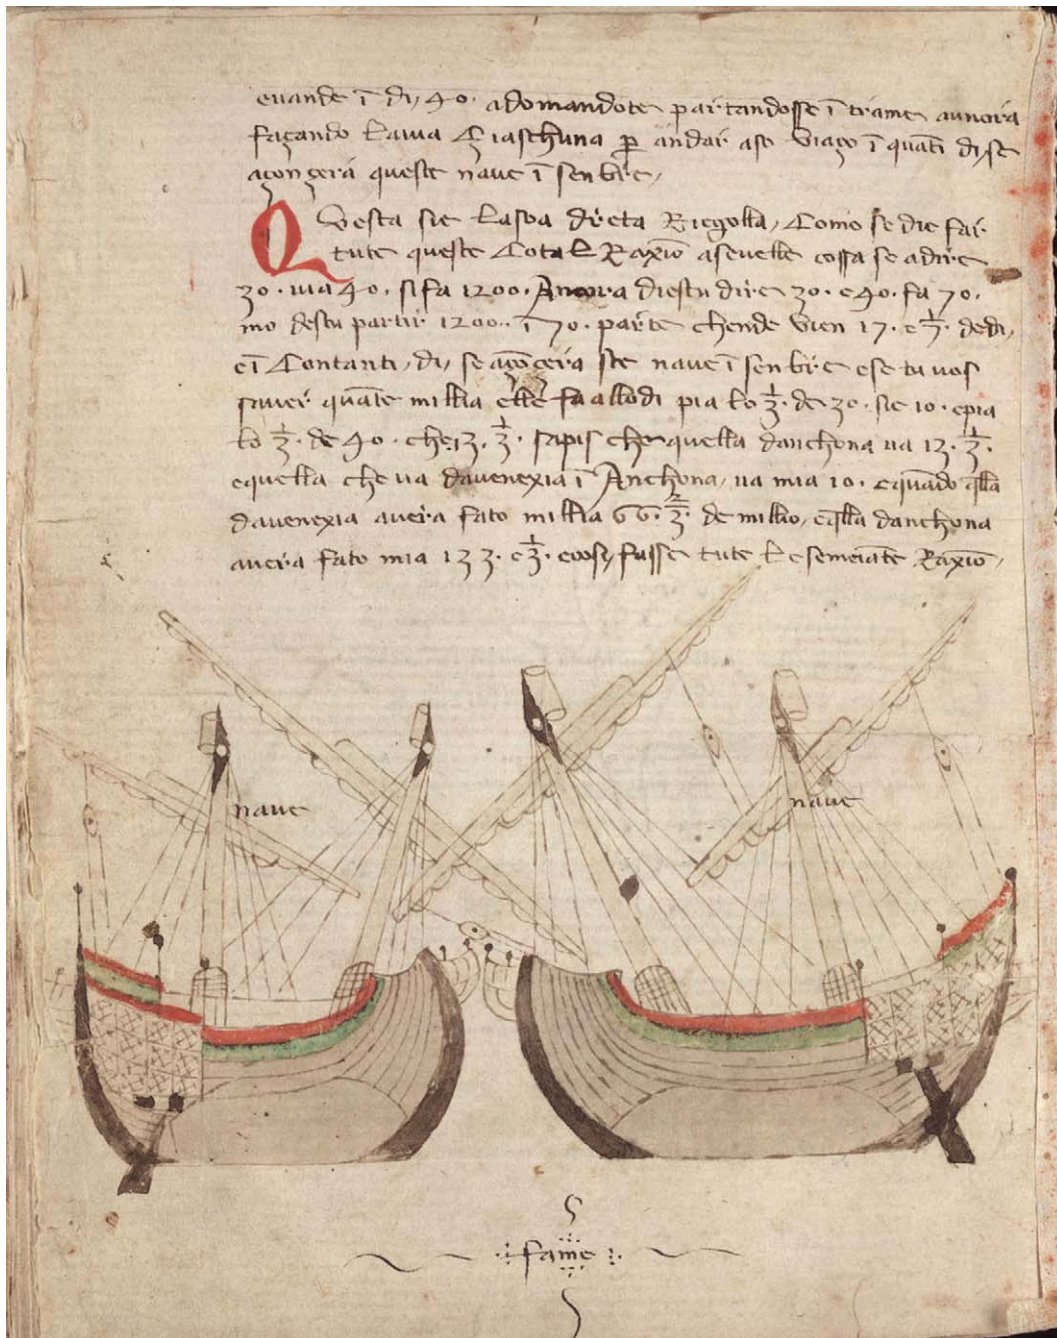 evande ī dỳ 40. adomandote partandosse ī trame anncora
façando lauua Ziaschuna p̄ andar aso Viaço ī quāti dỳ se
açonçerà queste nave ī senbre,
Questa sie lasoa dreta Riegolla, Como se die far
tute queste Cotal Raxiō asevelle cossa se adire
30. uia 40. si fa 1200. Ancora diestu dire 30. e 40. fa 70.
mo destu partir 1200. ī 70. parte chende vien 17. e 1/7. dedi,
e ī Contanti, dỳ, se açōçerà ste nave ī senbre e se tu vos
saver quāte millia elle fa allo dì pia lo 1/3. de 30. sie 10. e pia
lo 1/3. de 40. che 13. 1/3. sapis che quella danchona va 13. 1/3.
e quella che va davenexia ī Anchona, va mia 10. e quādo q̄lla
davenexia avera fato millia 66. 2/3. de millio, e q̄lla danchona
avera fato mia 133. e 1/3. e cosỳ fasse tute le semeiāte Raxiō,
nave
nave
fame